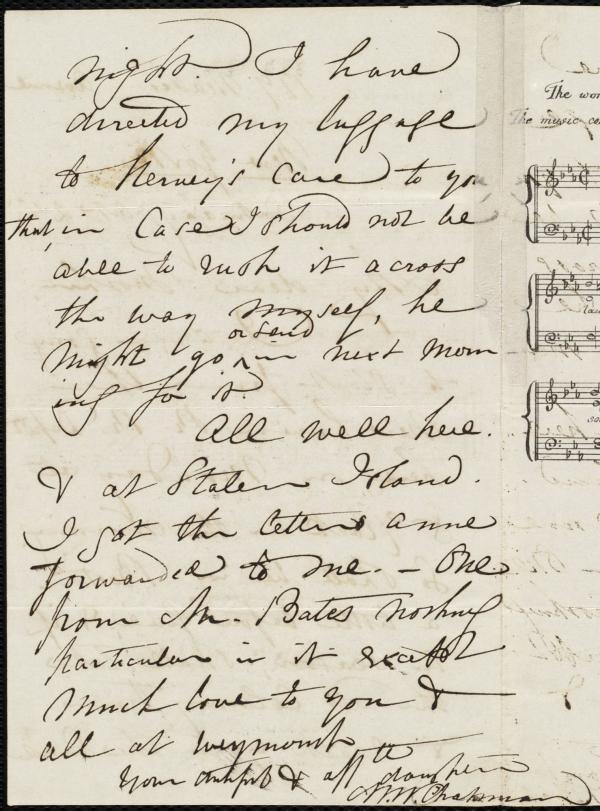 night. I have
directed my luggage
to Hervey's care to you
that, in case I should not be
able to rush it across
the way myself, he
might go or send in next morn
ing for it.
All well here.
& at Staten Island.
I got the letters Anne
forwarded to me. – One
from Mr. Bates nothing
particular in it except
much love to you &
all at Weymouth
Your dutiful & aff te daughter
M. W. Chapman
The wor
The music co